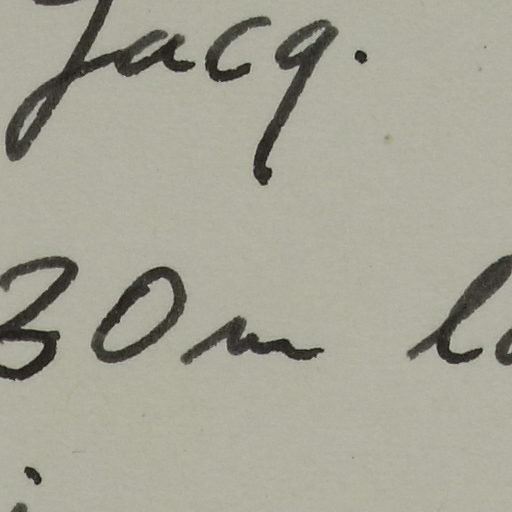 Jacq.
30m